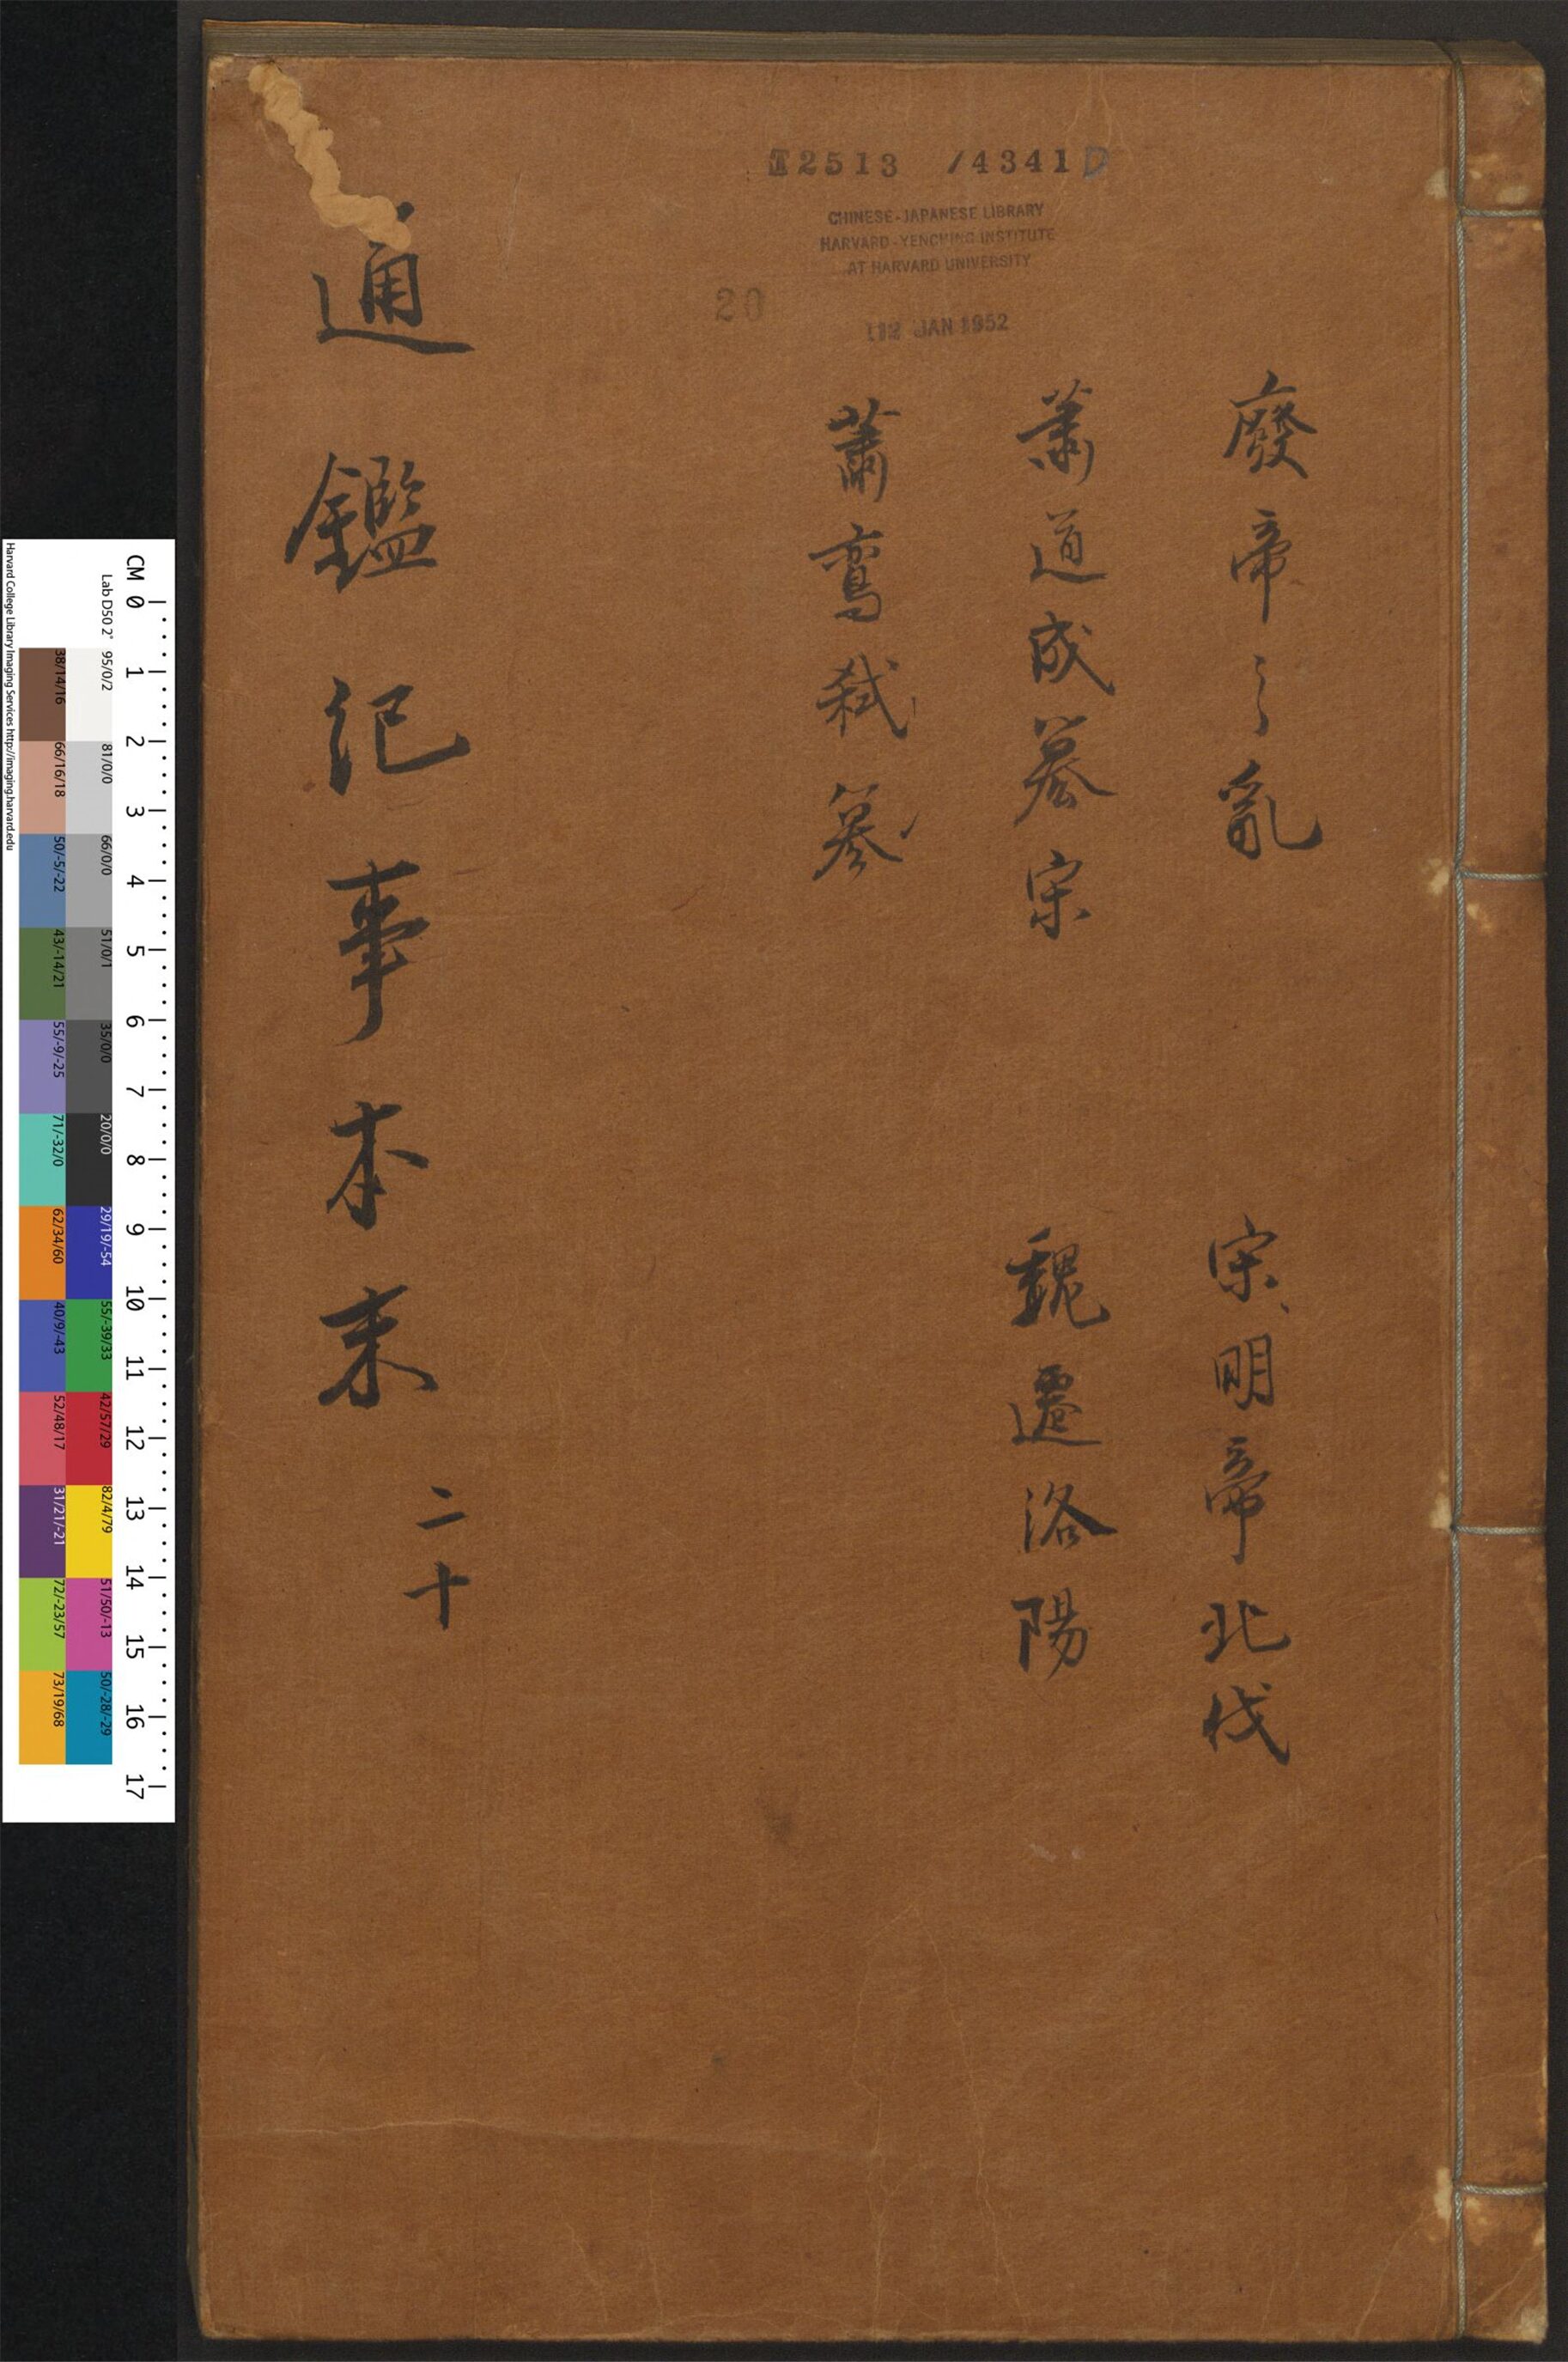 T2513 /4341D
CHINESE-JAPANESE LIBRARY
HARVARD-YENCHING INSTITUTE
AT HARVARD UNIVERSITY
12 JAN 1952
20
廢帝之亂
宋明帝北伐
蕭道成篡宋
魏遷洛陽
蕭鸞弒篡
通鑑紀事本末
二十
CM 0 1 2 3 4 5 6 7 8 9 10 11 12 13 14 15 16 17
Lab D50 2° 95/0/2 81/0/0 66/0/0 51/0/1 35/0/0 20/0/0 29/19/-54 55/-39/33 42/57/29 82/4/79 51/50/-13 50/-28/-29
38/14/16 66/16/18 50/-5/-22 43/-14/21 55/-9/-25 71/-32/0 62/34/60 40/9/-43 52/48/17 31/21/-21 72/-23/57 73/19/68
Harvard College Library Imaging Services http://imaging.harvard.edu